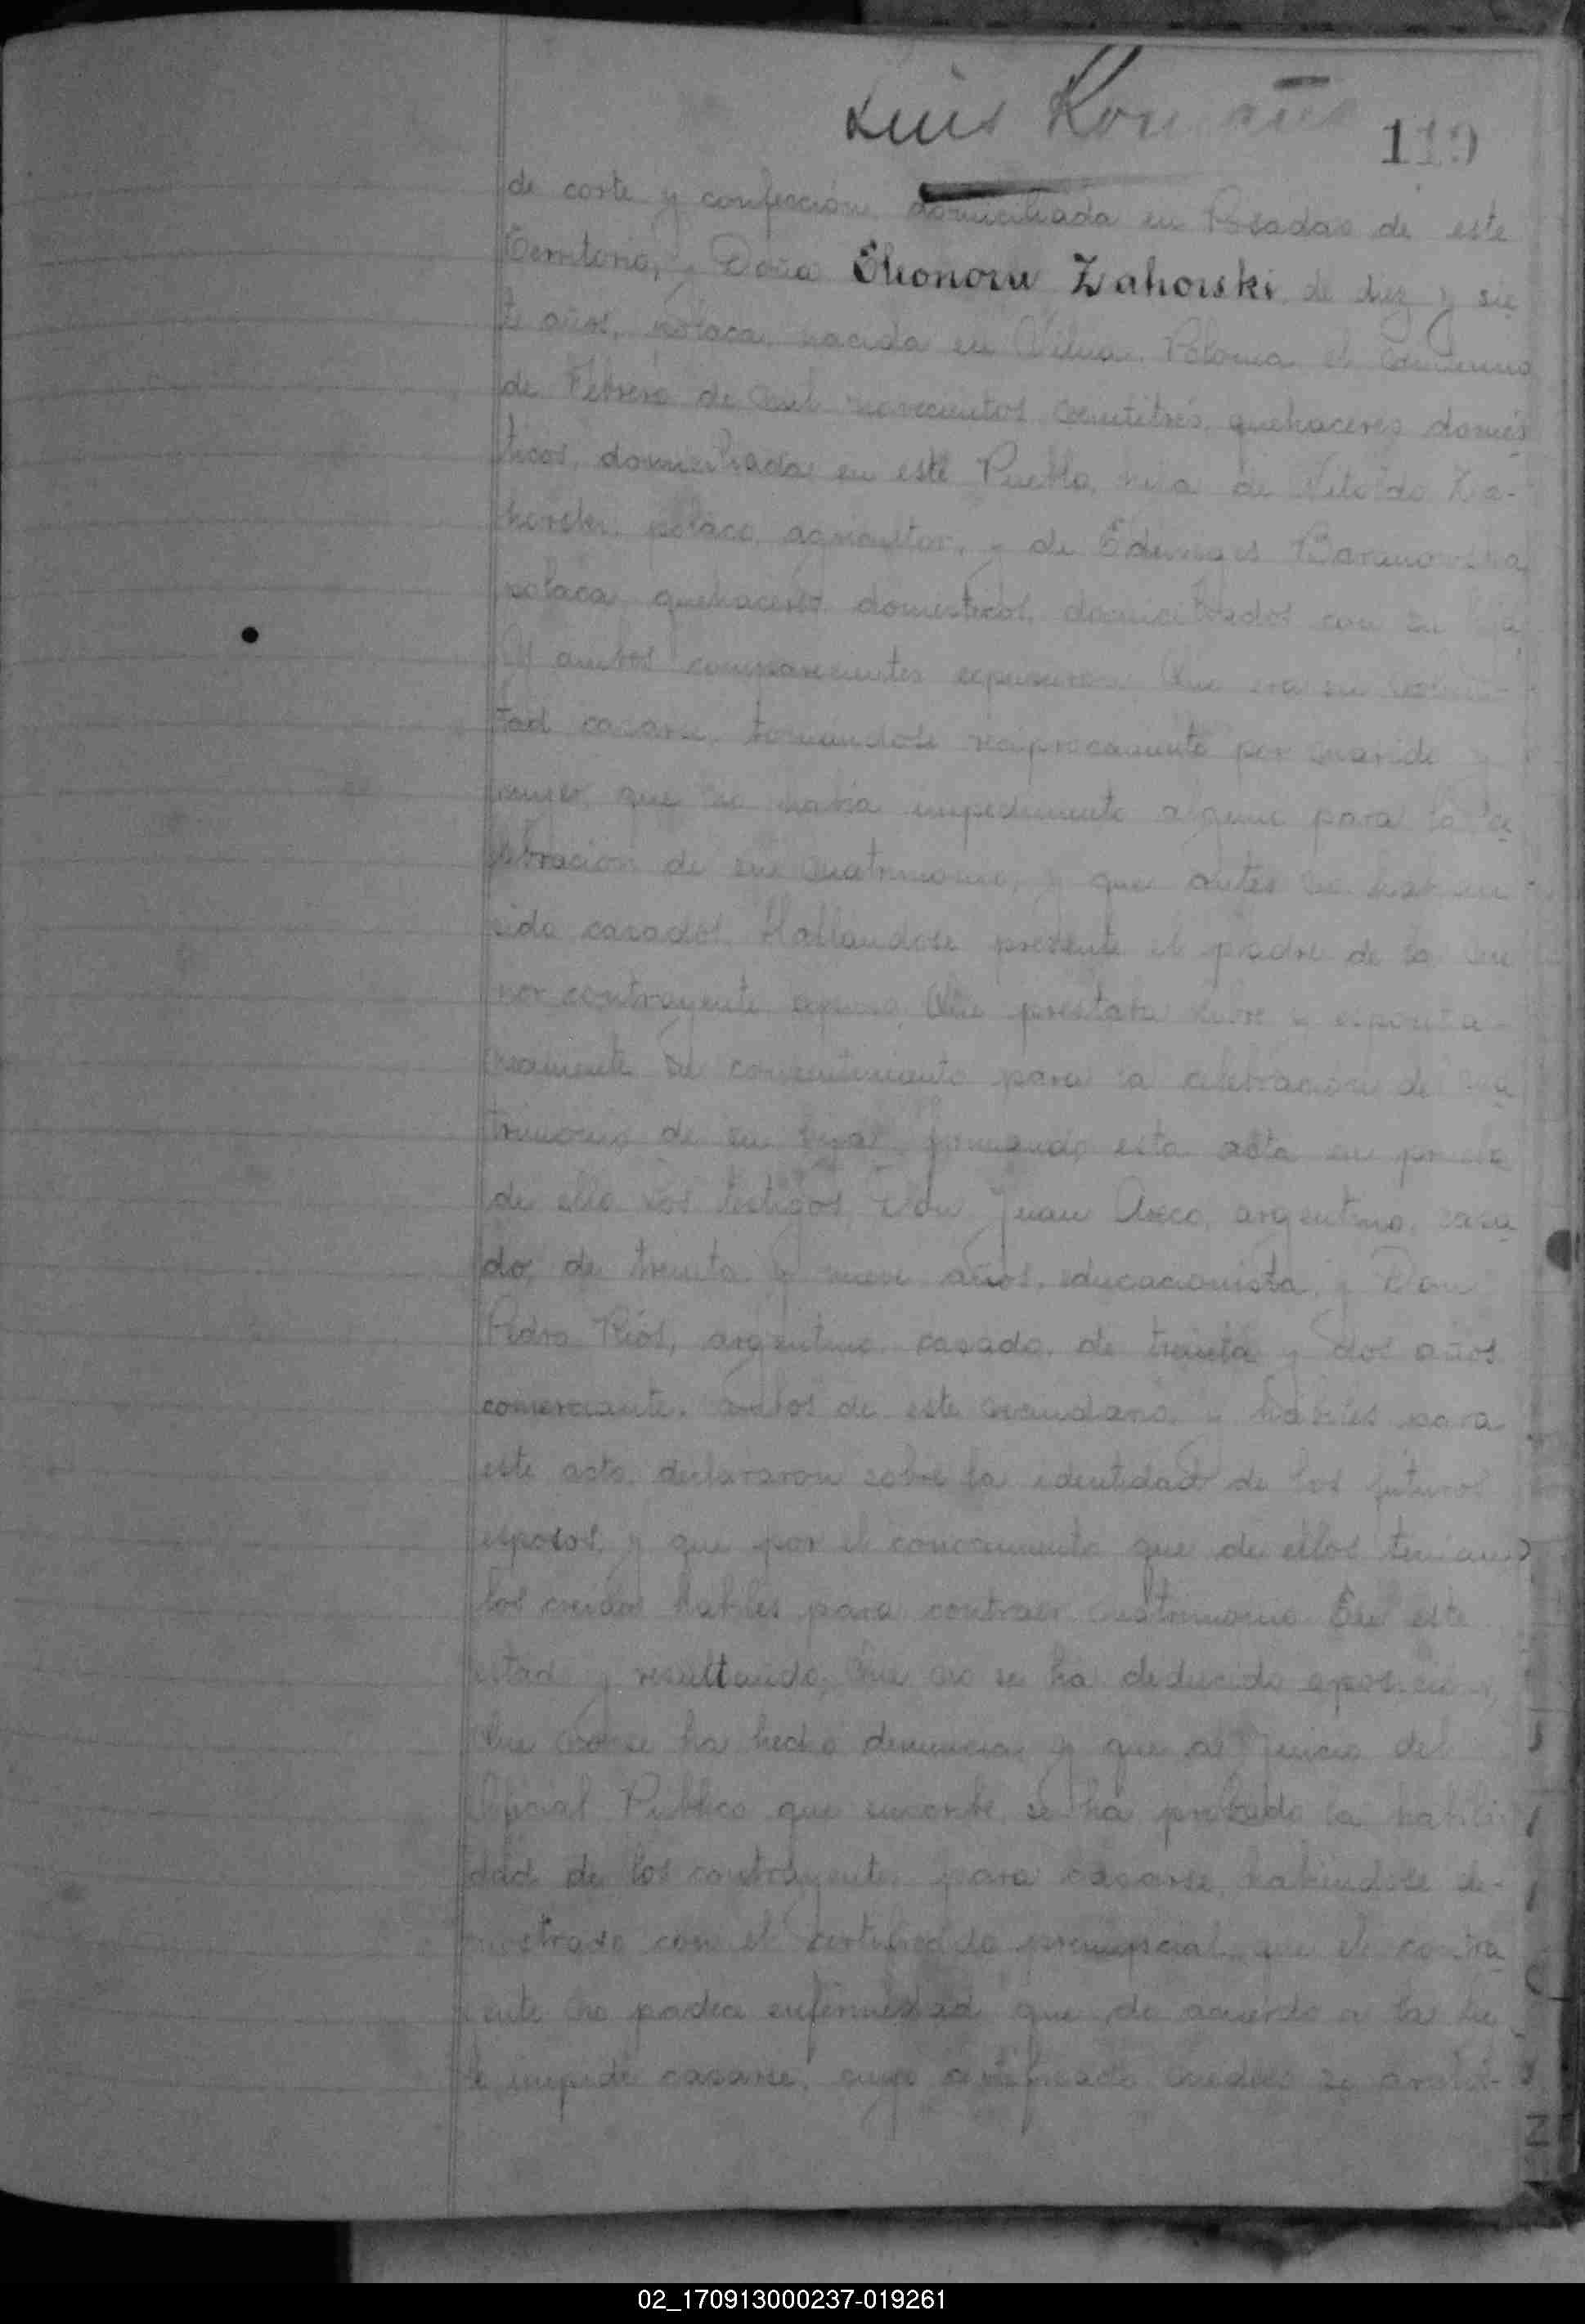 Luis
119
de corte y confección, domiciliada en Posadas de este
Territorio, y Doña Eleonora Zahorski, de diez y sie
te años, polaca, nacida en Vilna, Polonia el veintiuno
de Febrero de mil novecientos veintitrés, quehaceres domés
ticos, domiciliada en este Pueblo, hija de Vitoldo Za-
horski, polaco, agricultor, y de Eduviges Baranowska
polaca, quehaceres domésticos, domiciliados con su hija
Y ambos comparecientes expusieron: Que era su volun-
tad casarse, tomándose recíprocamente por marido y
mujer, que no había impedimento alguno para la ce
lebración de su matrimonio, y que antes no habían
sido casados. Hallándose presente el padre de la me
nor contrayente expuso: Que prestaba libre y espontá-
neamente su consentimiento para la celebración del ma
trimonio de su hija, firmando esta acta en prueba
de ello. Los testigos, Don Juan Areco, argentino, casa
do, de treinta y nueve años, educacionista, y Don
Pedro Ríos, argentino, casado, de treinta y dos años
comerciante, ambos de este vecindario, y hábiles para
este acto, declararon sobre la identidad de los futuros
esposos, y que por el conocimiento que de ellos tenían
los creían hábiles para contraer matrimonio. En este
estado y resultando: Que no se ha deducido oposición,
Que no se ha hecho denuncia, y que a juicio del
Oficial Público que suscribe, se ha probado la habili
dad de los contrayentes para casarse, habiéndose de-
mostrado con el certificado prenupcial, que el contra
yente no padece enfermedad que de acuerdo a la ley
le impide casarse, cuyo certificado médico se
02_170913000237-019261